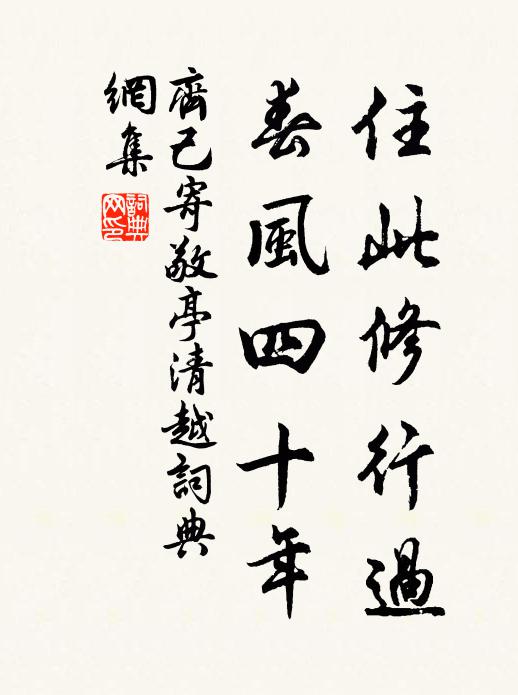 住此修行過
春風四十年
齊己寄敬亭清越詞典
網集
詞典
网印